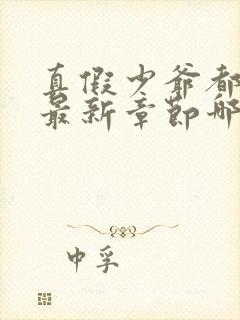 真假少爷都
最新章节那
中孚